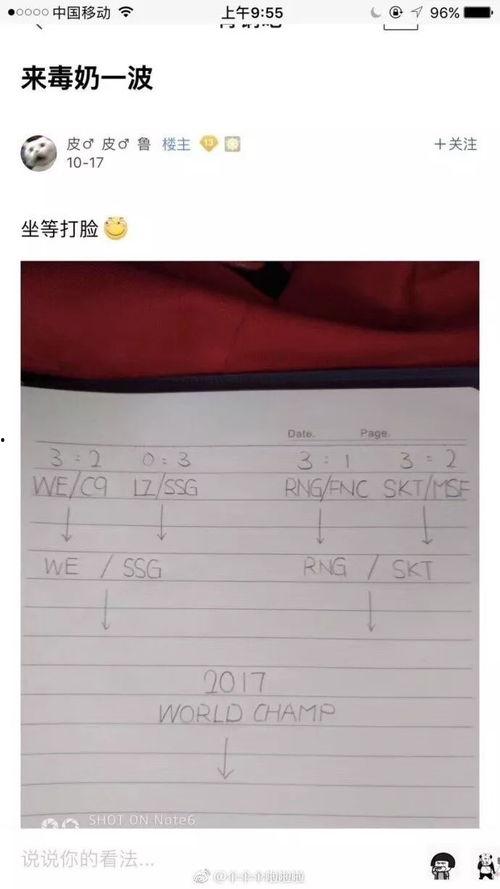 中国移动 上午9:55 96%
来毒奶一波
皮♂ 皮♂ 鲁 楼主 13
10-17
+关注
坐等打脸
Date. Page.
3:2 0:3 3:1 3:2
WE/C9 LZ/SSG RNG/FNC SKT/MSF
WE / SSG RNG / SKT
2017
WORLD CHAMP
SHOT ON Note6
说说你的看法...